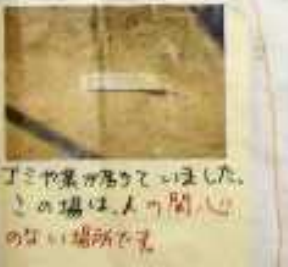 ゴミや葉が落ちていました。
この場は、人の関心
のない場所です。